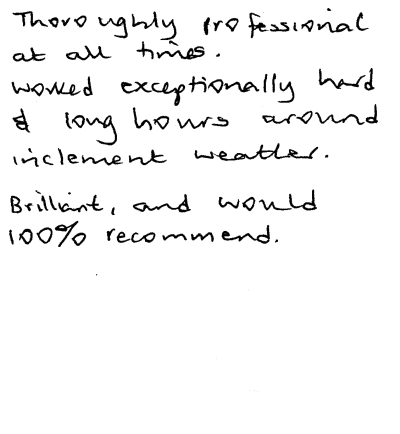 Thoroughly professional
at all times.
Worked exceptionally hard
& long hours around
inclement weather.
Brilliant, and would
100% recommend.